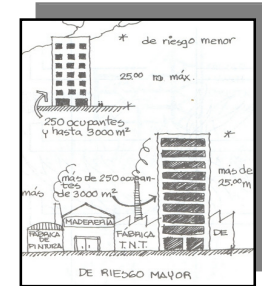 * de riesgo menor
25.00 m máx.
250 ocupantes
y hasta 3000 m²
*
más de 250 ocupan-
tes
más de 3000 m²
más de
25.00 m
MADERERÍA
FÁBRICA
DE
PINTURA
FÁBRICA
T.N.T.
DE
DE RIESGO MAYOR